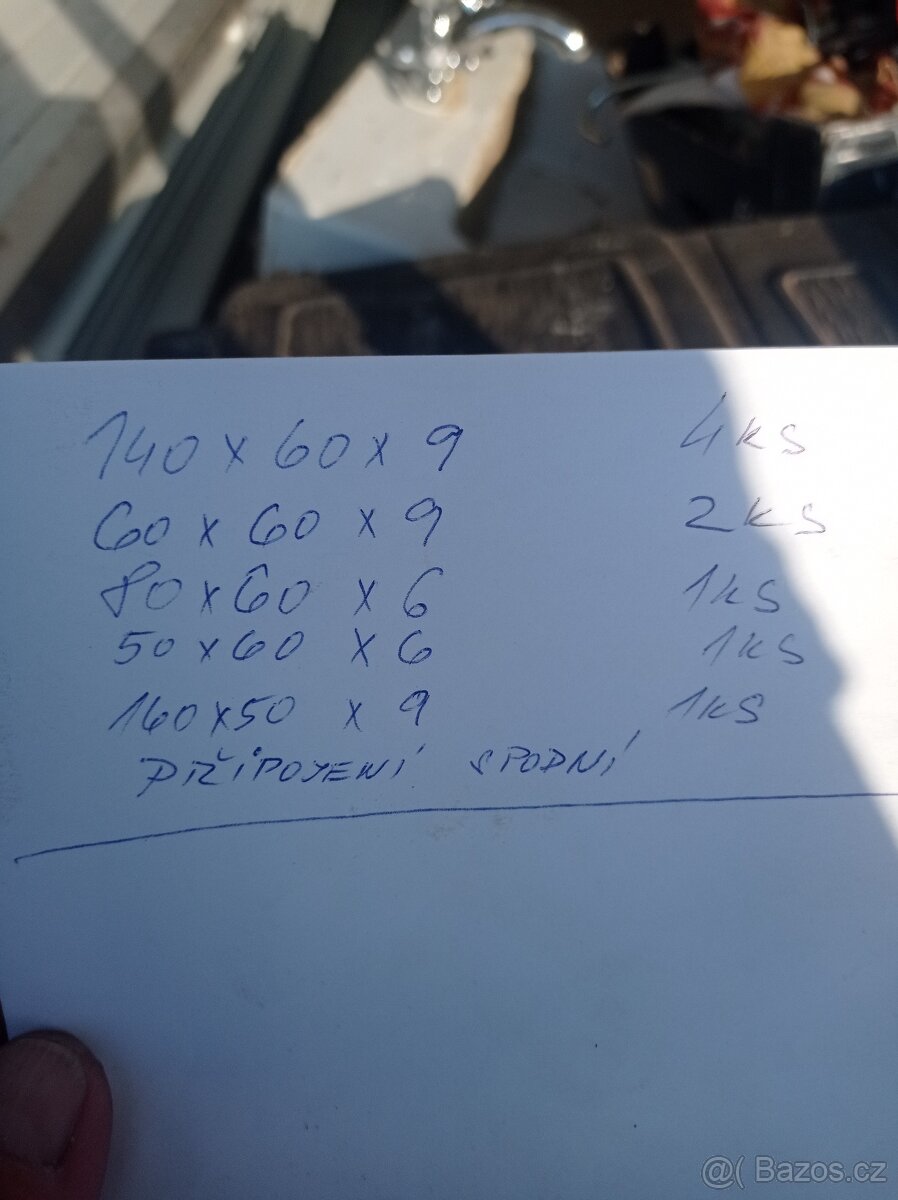 140 x 60 x 9 4ks
60 x 60 x 9 2ks
80 x 60 x 6 1ks
50 x 60 x 6 1ks
160 x 50 x 9 1ks
PŘIPOJENÍ SPODNÍ
@( Bazos.cz